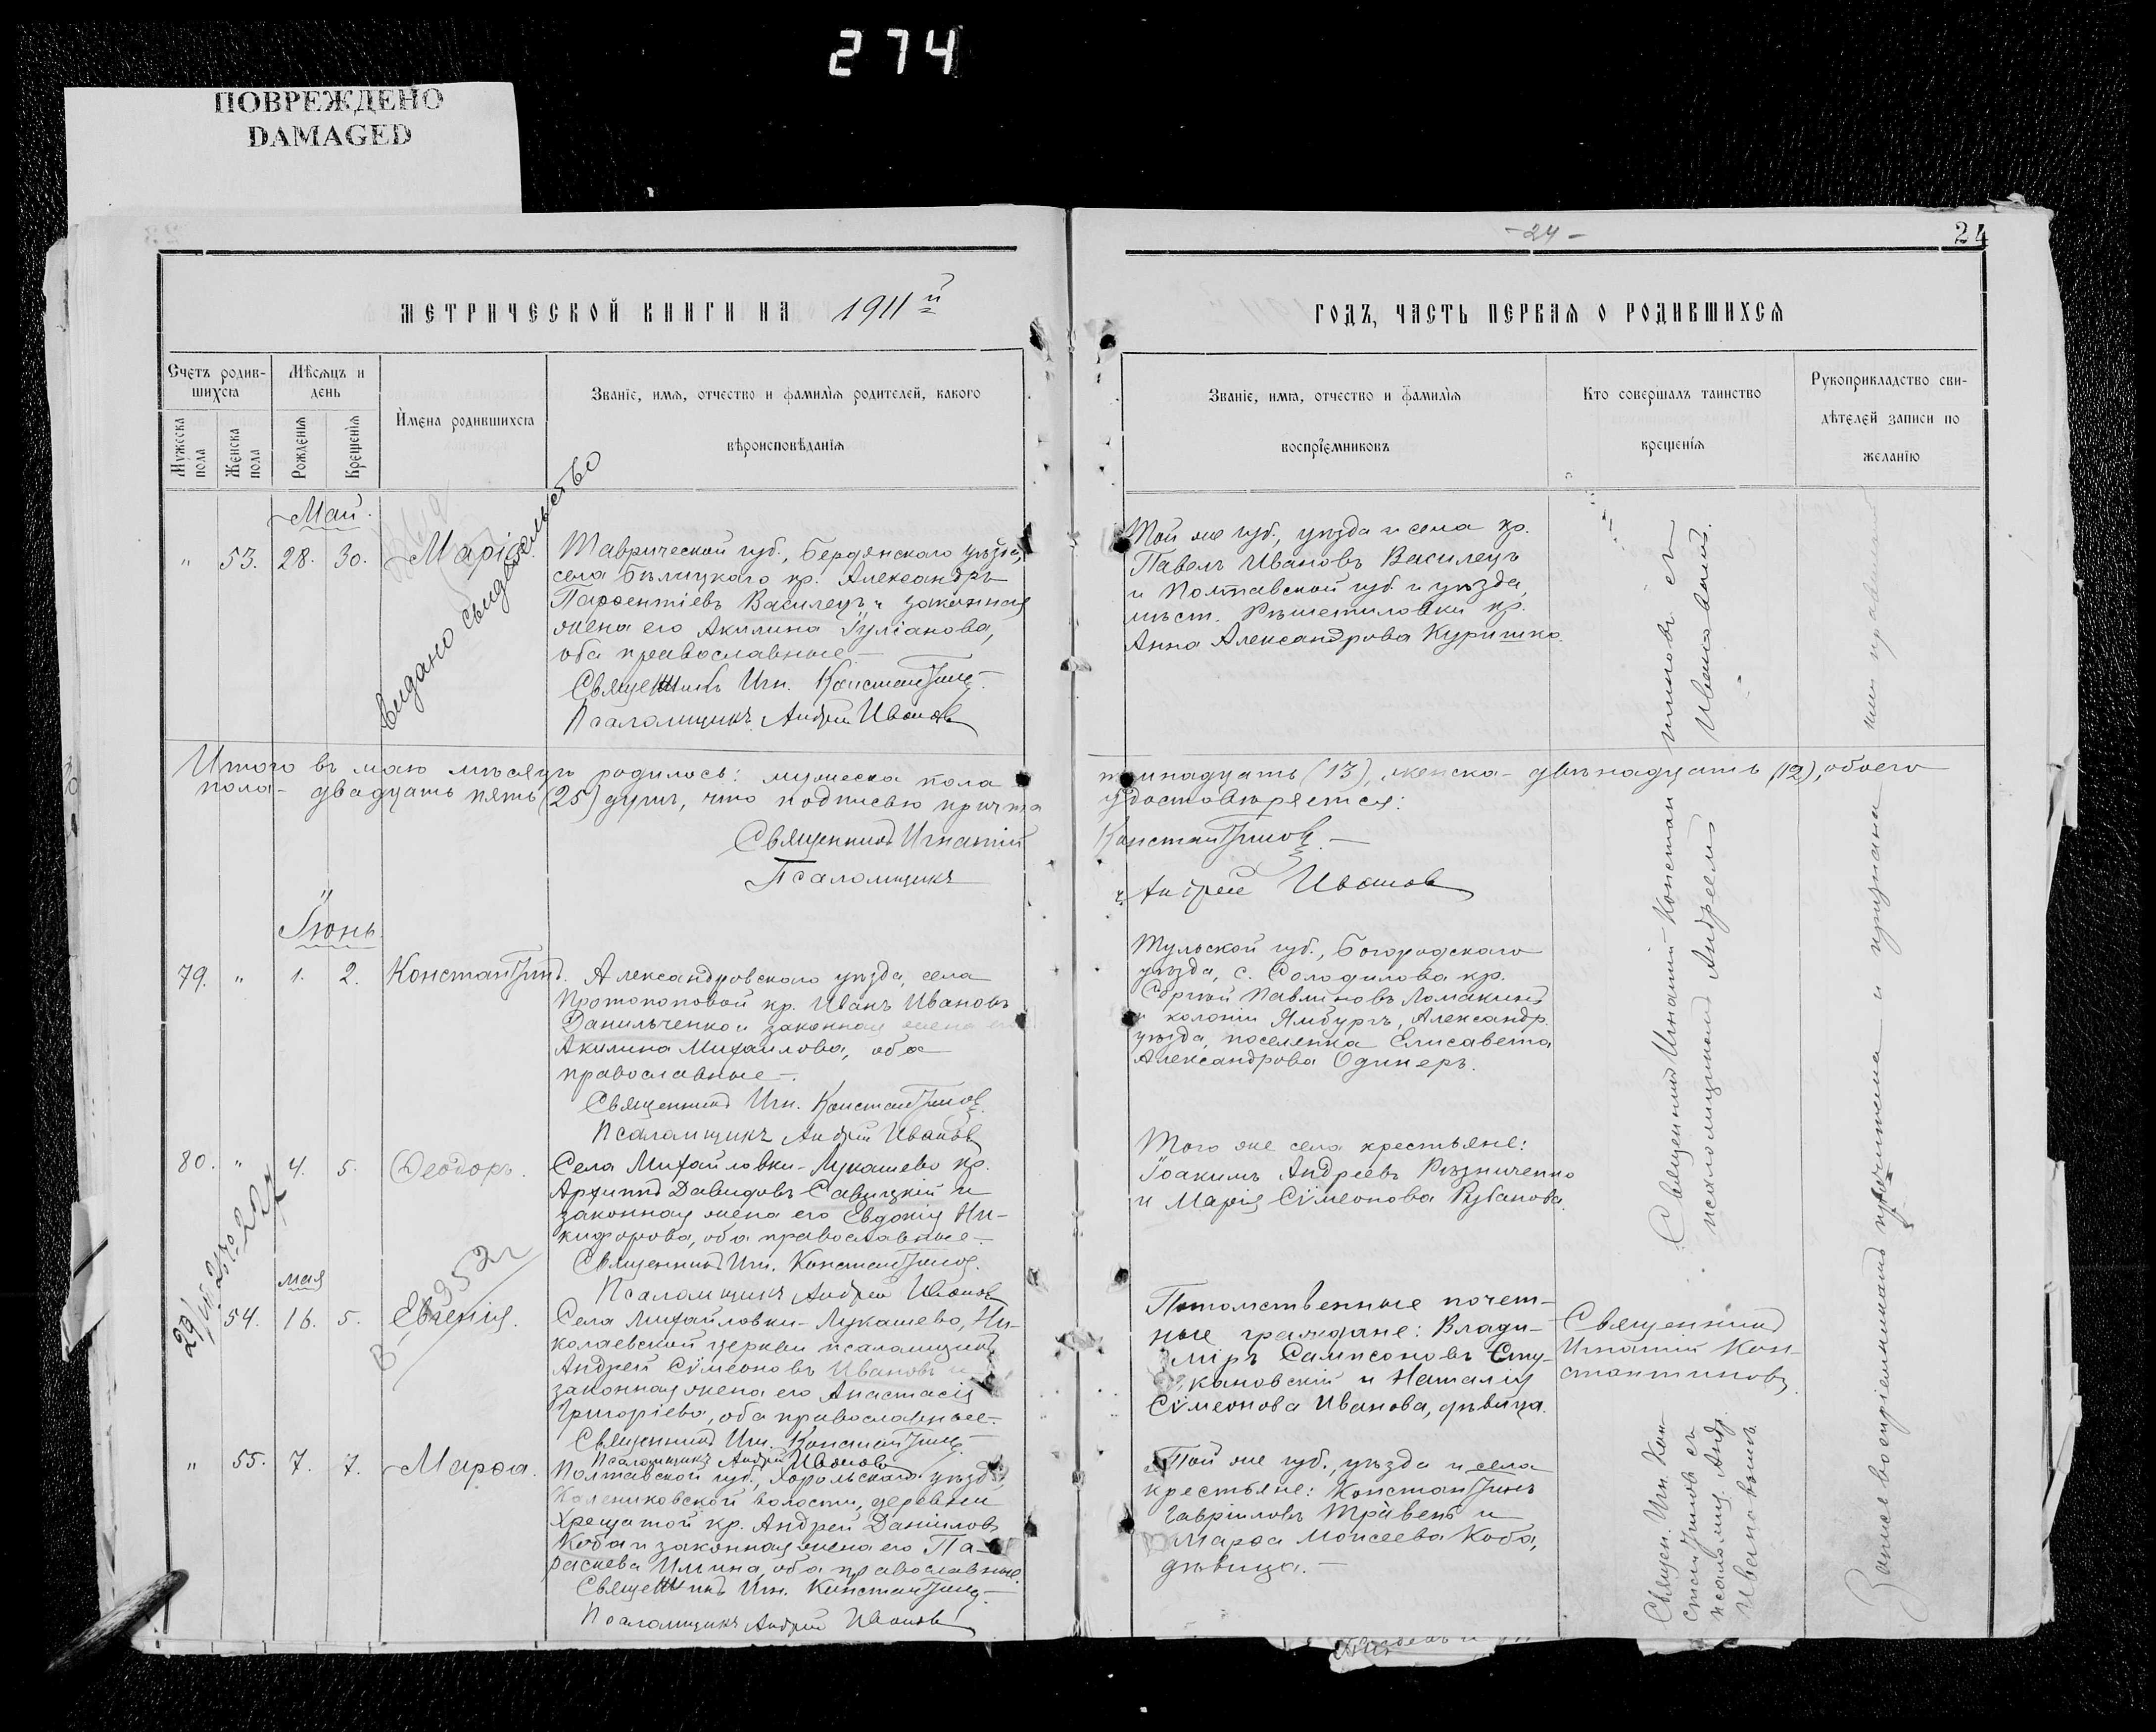 274
ПОВРЕЖДЕНО
DAMAGED
МЕТРИЧЕСКОЙ КНИГИ НА 1911й
Счетъ родив-
шихся
Мѣсяцъ и
день
Мужеска
пола
Женска
пола
Рожденія
Крещенія
Имена родившихся
Званіе, имя, отчество и фамилія родителей, какого
вѣроисповѣданія
Май.
" 53. 28. 30. Марія.
Выдано свидѣтельство
Таврической губ., Бердянскаго уѣзда,
села Бѣлицкаго кр. Александръ
Парѳентіевъ Василецъ и законная
жена его Акилина Іуліанова,
оба православные.
Священникъ Игн. Константинов.
Псаломщикъ Андрей Иванов
Итого въ маѣ мѣсяцѣ родилось: мужеска пола
пола - двадцать пять (25) душъ, что подписью причта
Священникъ Игнатій
Псаломщикъ
Іюнь.
79. " 1. 2. Константинъ.
Александровскаго уѣзда, села
Протопоповой кр. Иванъ Ивановъ
Данильченко и законная жена его
Акилина Михаилова, оба
православные.
Священникъ Игн. Константинов.
Псаломщикъ Андрей Иванов
80. " 4. 5. Ѳеодоръ.
Села Михайловки-Лукашево кр.
Архипъ Давидовъ Савицкій и
законная жена его Евдокія Ни-
кифорова, оба православные.
Священникъ Игн. Константинов.
Псаломщикъ Андрей Иванов
мая
54. 16. 5. Евгенія.
Села Михайловки-Лукашево, Ни-
колаевской церкви псаломщикъ
Андрей Сѵмеоновъ Ивановъ и
законная жена его Анастасія
Григоріева, оба православные.
Священникъ Игн. Константинов.
Псаломщикъ Андрей Иванов
" 55. 7. 7. Марѳа.
Полтавской губ., Хорольскаго уѣзда,
волости, деревни
Хрещатой кр. Андрей Даніиловъ
Коба и законная жена его Па-
раскева Ильина, оба православные.
Священникъ Игн. Константинов.
Псаломщикъ Андрей Иванов
-24-
24
ГОДЪ, ЧАСТЬ ПЕРВАЯ О РОДИВШИХСЯ
Званіе, имя, отчество и фамилія
воспріемниковъ
Кто совершалъ таинство
крещенія
Рукоприкладство сви-
дѣтелей записи по
желанію
Той же губ., уѣзда и села кр.
Павелъ Ивановъ Василецъ
и Полтавской губ. и уѣзда,
мѣст. Рѣшетиловки кр.
Анна Александрова Куришко.
тринадцать (13), женска - двѣнадцать (12), обоего
удостовѣряется:
Константинов.
Андрей Иванов
Тульской губ., Богородскаго
уѣзда, с. Солодилова кр.
Сергѣй Павлиновъ Ломакинъ
и колоніи Ямбургъ, Александр.
уѣзда, поселянка Елисавета
Александрова Одинеръ.
Того же села крестьяне:
Іоакимъ Андреевъ Рѣзниченко
и Марія Сѵмеонова Рубанова.
Потомственные почет-
ные граждане: Влади-
міръ Сампсоновъ Сту-
кановскій и Наталія
Сѵмеонова Иванова, дѣвица.
Той же губ., уѣзда и села
крестьяне: Константинъ
Гавріиловъ Травень и
Марѳа Моисеева Коба,
дѣвица.
Священникъ Игнатій Константиновъ съ
псаломщикомъ Андреемъ Ивановымъ.
Священникъ
Игнатій Кон-
стантиновъ.
Священ. Игн. Кон-
стантиновъ съ
псаломщ. Андр.
Ивановымъ